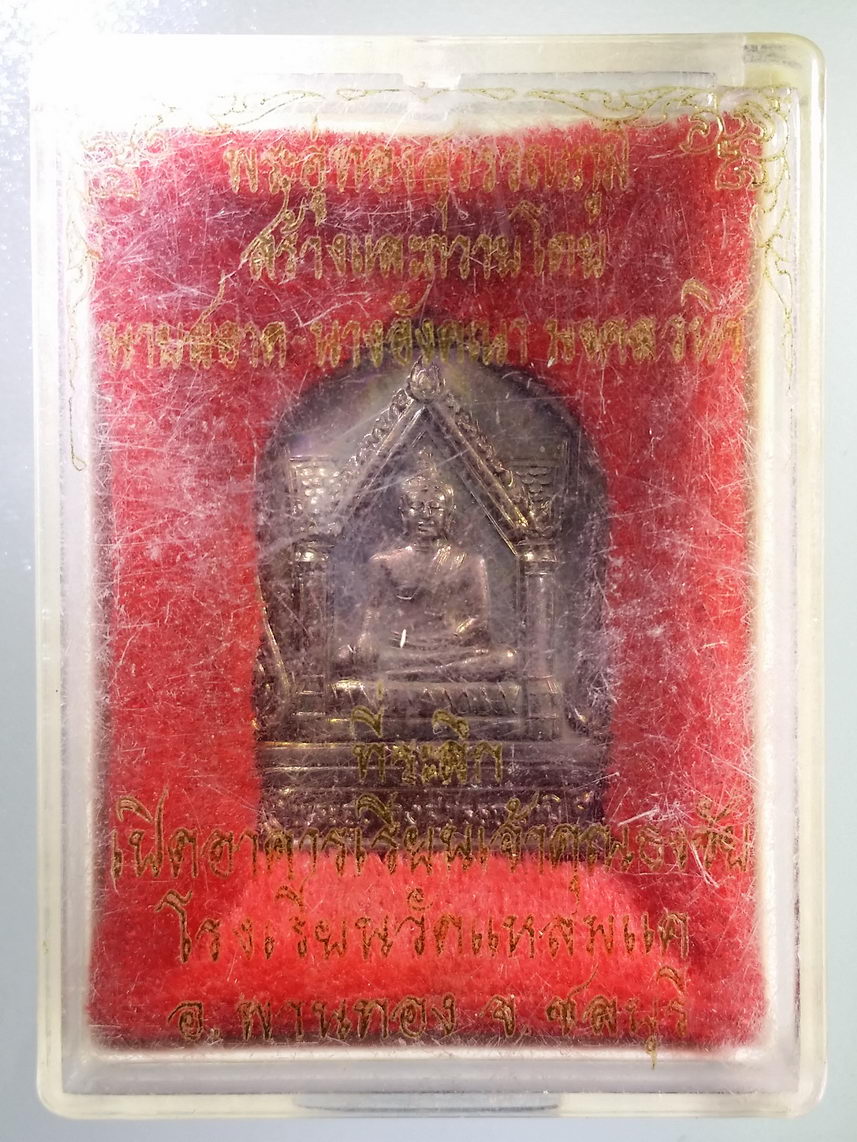 พระอู่ทองสุวรรณภูมิ
สร้างและถวายโดย
นายสอาด-นางอังคณา
ที่ระลึก
เปิดอาคารเรียนเจ้าคุณธงชัย
โรงเรียนวัดแหลมแค
อ.พานทอง จ.ชลบุรี